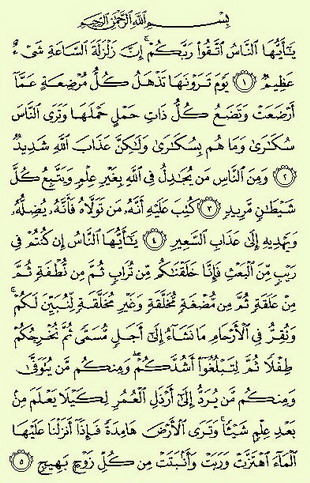 بِسْمِ ٱللَّهِ ٱلرَّحْمَٰنِ ٱلرَّحِيمِ
يَٰٓأَيُّهَا ٱلنَّاسُ ٱتَّقُوا۟ رَبَّكُمْ ۚ إِنَّ زَلْزَلَةَ ٱلسَّاعَةِ شَىْءٌ
عَظِيمٌ ١ يَوْمَ تَرَوْنَهَا تَذْهَلُ كُلُّ مُرْضِعَةٍ عَمَّآ
أَرْضَعَتْ وَتَضَعُ كُلُّ ذَاتِ حَمْلٍ حَمْلَهَا وَتَرَى ٱلنَّاسَ
سُكَٰرَىٰ وَمَا هُم بِسُكَٰرَىٰ وَلَٰكِنَّ عَذَابَ ٱللَّهِ شَدِيدٌ
٢ وَمِنَ ٱلنَّاسِ مَن يُجَٰدِلُ فِى ٱللَّهِ بِغَيْرِ عِلْمٍ وَيَتَّبِعُ كُلَّ
شَيْطَٰنٍ مَّرِيدٍ ٣ كُتِبَ عَلَيْهِ أَنَّهُۥ مَن تَوَلَّاهُ فَأَنَّهُۥ يُضِلُّهُۥ
وَيَهْدِيهِ إِلَىٰ عَذَابِ ٱلسَّعِيرِ ٤ يَٰٓأَيُّهَا ٱلنَّاسُ إِن كُنتُمْ فِى
رَيْبٍ مِّنَ ٱلْبَعْثِ فَإِنَّا خَلَقْنَٰكُم مِّن تُرَابٍ ثُمَّ مِن نُّطْفَةٍ ثُمَّ
مِنْ عَلَقَةٍ ثُمَّ مِن مُّضْغَةٍ مُّخَلَّقَةٍ وَغَيْرِ مُخَلَّقَةٍ لِّنُبَيِّنَ لَكُمْ ۚ
وَنُقِرُّ فِى ٱلْأَرْحَامِ مَا نَشَآءُ إِلَىٰٓ أَجَلٍ مُّسَمًّى ثُمَّ نُخْرِجُكُمْ
طِفْلًا ثُمَّ لِتَبْلُغُوٓا۟ أَشُدَّكُمْ ۖ وَمِنكُم مَّن يُتَوَفَّىٰ
وَمِنكُم مَّن يُرَدُّ إِلَىٰٓ أَرْذَلِ ٱلْعُمُرِ لِكَيْلَا يَعْلَمَ مِنۢ
بَعْدِ عِلْمٍ شَيْـًٔا ۚ وَتَرَى ٱلْأَرْضَ هَامِدَةً فَإِذَآ أَنزَلْنَا عَلَيْهَا
ٱلْمَآءَ ٱهْتَزَّتْ وَرَبَتْ وَأَنۢبَتَتْ مِن كُلِّ زَوْجٍۭ بَهِيجٍ ٥